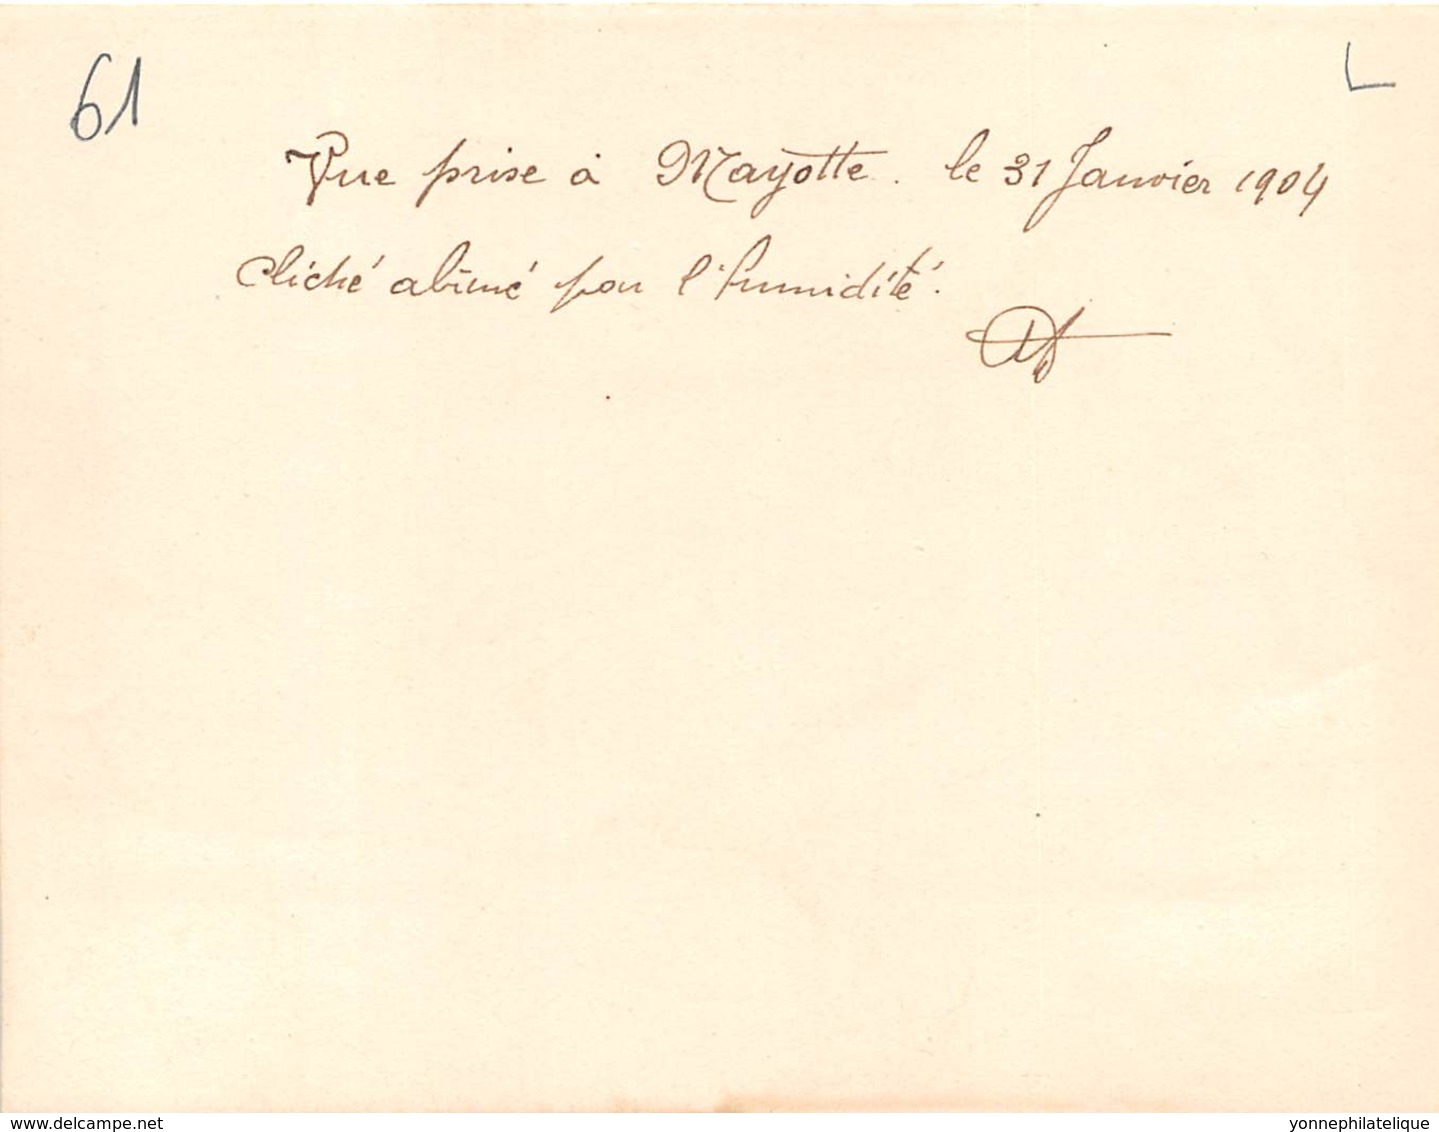 61
L
Vue prise à Mayotte. le 31 Janvier 1904
Cliché abîmé par l'humidité.
delcampe.net
yonnephilatelique